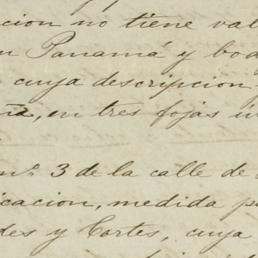 cion no tiene val
n Panamá y bod
cuya descripcion
ña, en tres fojas ú
nº 3 de la calle de
icacion, medida p
des y Cortes, cuya